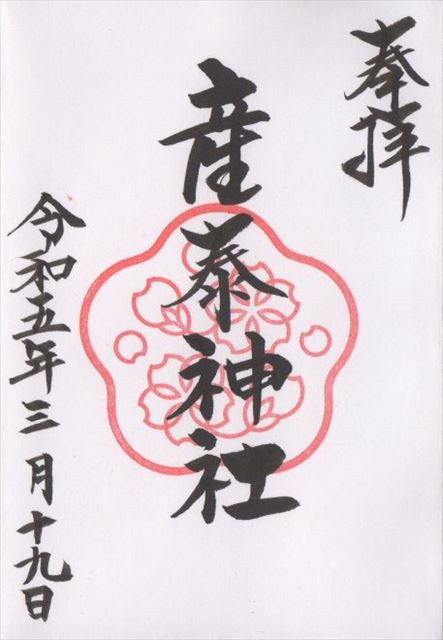 奉拝
産泰神社
令和五年三月十九日